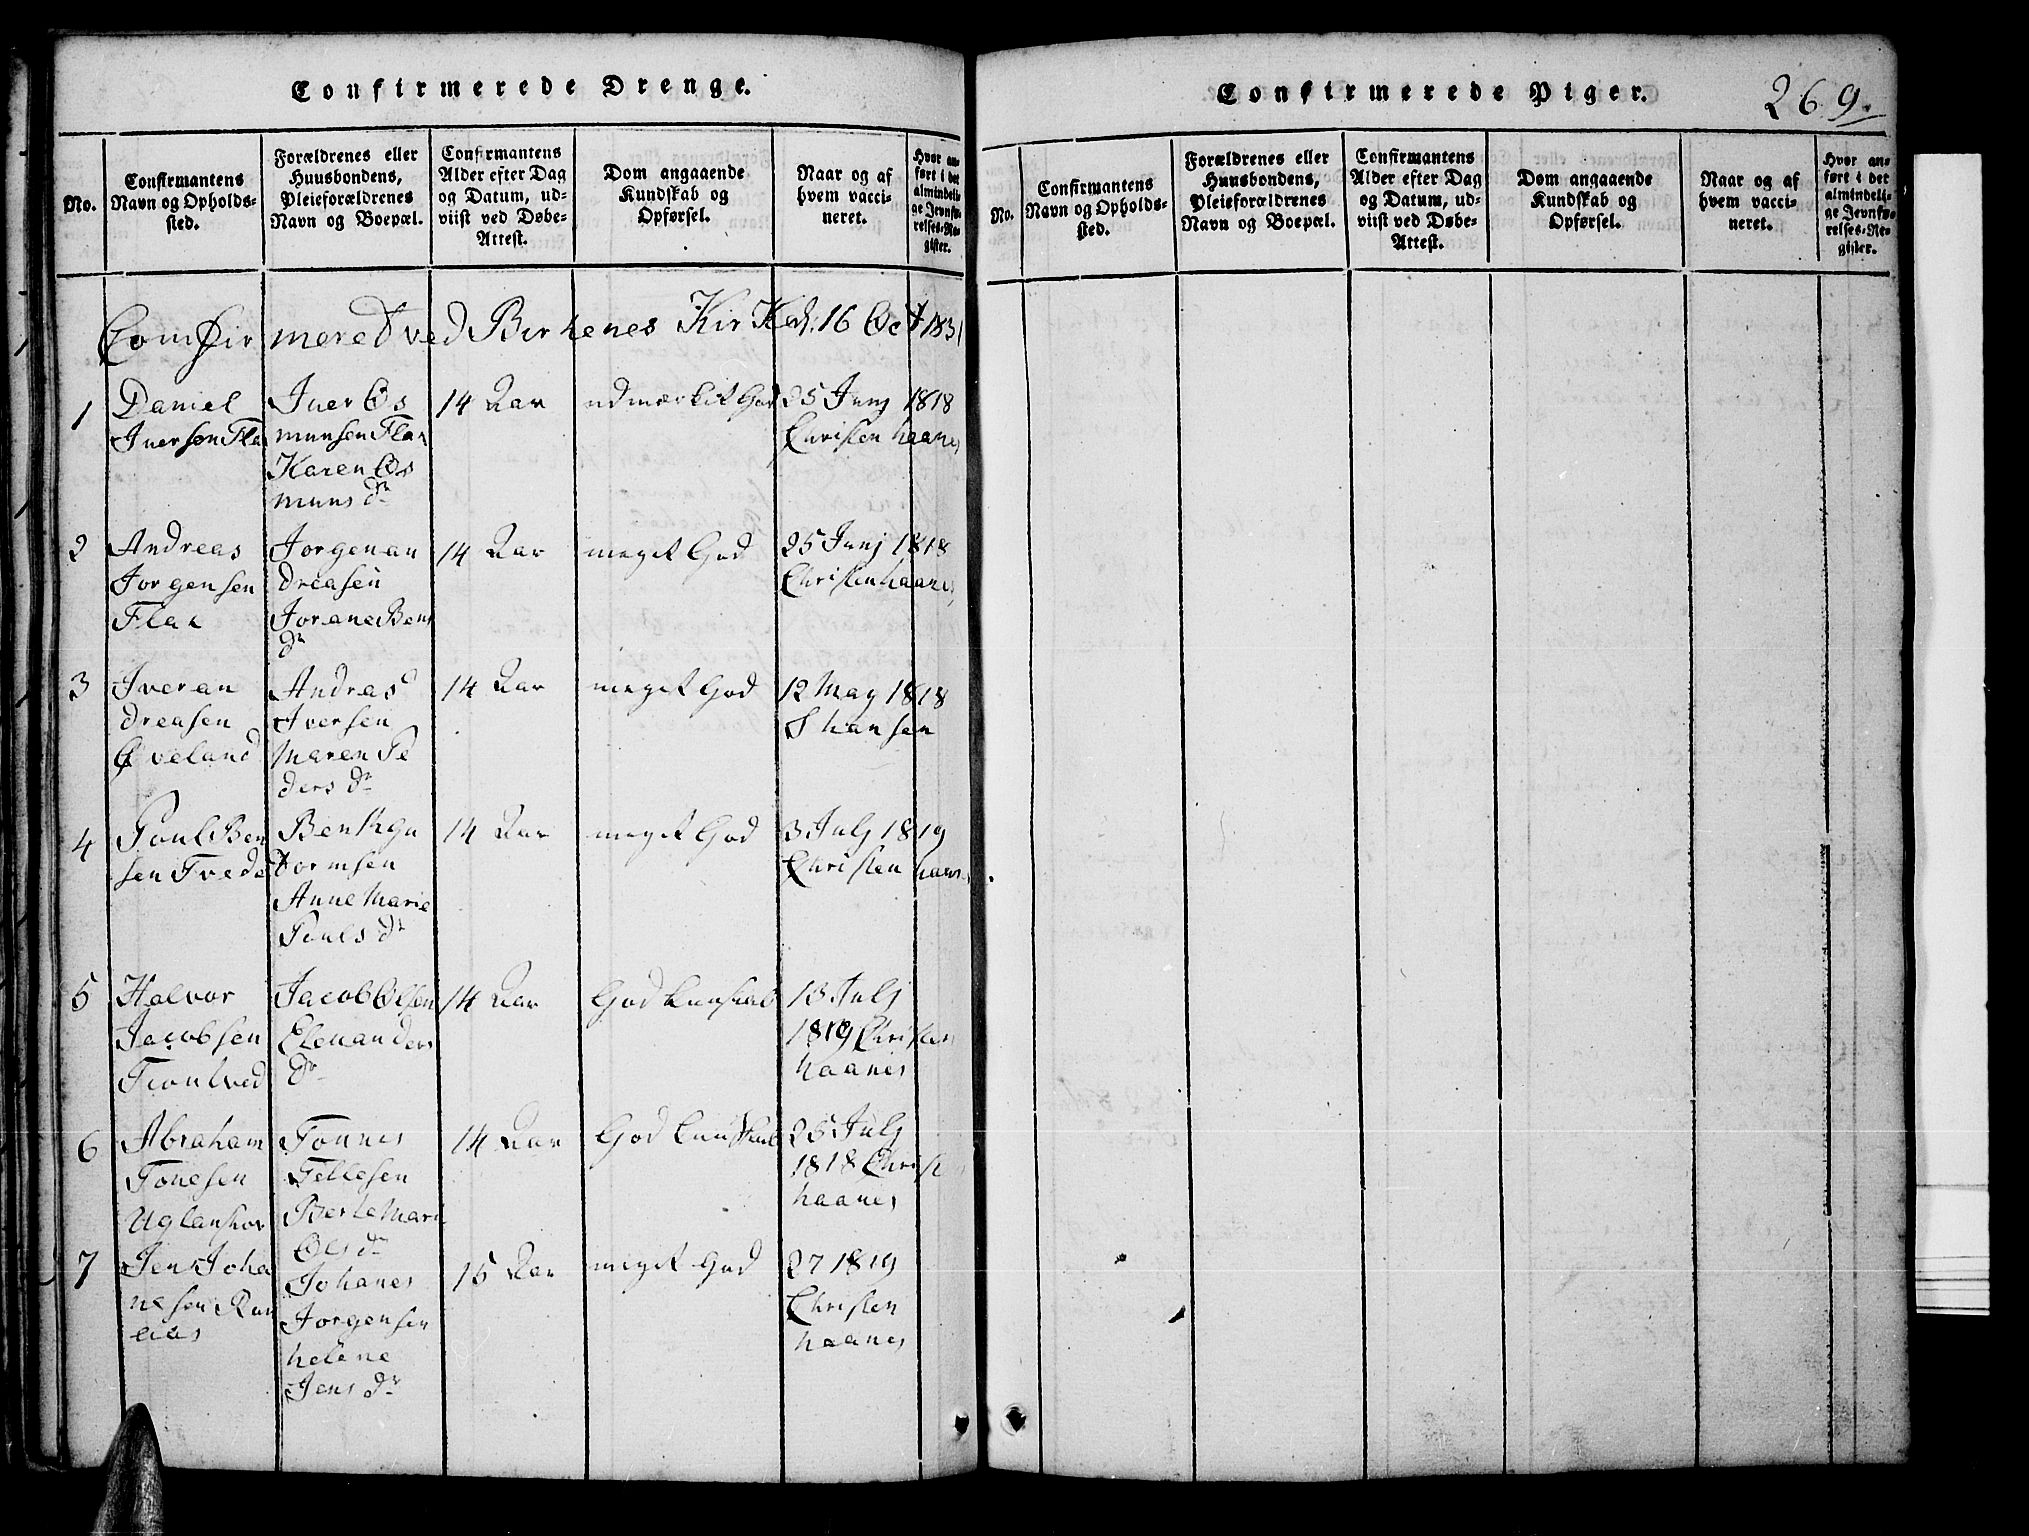 Confirmerede Drenge.
No.
Confirmantens
Navn og Opholds-
sted.
Forældrenes eller
Huusbondens,
Pleieforældrenes
Navn og Boepæl.
Confirmantens
Alder efter Dag
og Datum, ud-
viist ved Døbe-
Attest.
Dom angaaende
Kundskab og
Opførsel.
Naar og af
hvem vacci-
neret.
Hvor an-
ført i det
almindeli-
ge Jevnfø-
relses-Re-
gister.
Comfirmered ved Birkenes Kirke d: 16 Oct 1831
1
Daniel
Iversen Flak
Iver Os
munsen Flak
Karen Os
muns dr
14 Aar
udmærket God
25 Junj 1818
Christen haanes
2
Andreas
Jorgensen
Flak
Jorgen an
dreasen
Jorane Bens
dr
14 Aar
meget God
25 Junj 1818
Christen haanes
3
Iver an
dreasen
Øveland
Andras
Iversen
Maren Pe
ders dr
14 Aar
meget God
12 May 1818
S hansen
4
Poul Ben
sen Tvede
Benk gu
tormsen
Anne Marie
Pouls dr
14 Aar
meget God
3 Julj 1819
Christen haanes
5
Halvor
Jacobsen
Jacob Olsen
Elen anders
dr
14 Aar
God kunskab
13 Julj
1819 Christen
haanes
6
Abraham
Tonesen
Uglanskov
Tonnes
Tellesen
Berte Mari
Ols dr
14 Aar
God kunskab
25 Julj
1818 Christ
haanes
7
Jens Joha
nesen Ran
Johanes
Jorgensen
helene
Jens dr
15 Aar
meget God
27 1819
Christen
haanes
Confirmerede Piger.
269.
No.
Confirmantens
Navn og Opholds-
sted.
Forældrenes eller
Huusbondens,
Pleieforældrenes
Navn og Boepæl.
Confirmantens
Alder efter Dag
og Datum, ud-
viist ved Døbe-
Attest.
Dom angaaende
Kundskab og
Opførsel.
Naar og af
hvem vacci-
neret.
Hvor an-
ført i det
almindeli-
ge Jevnfø-
relses-Re-
gister.